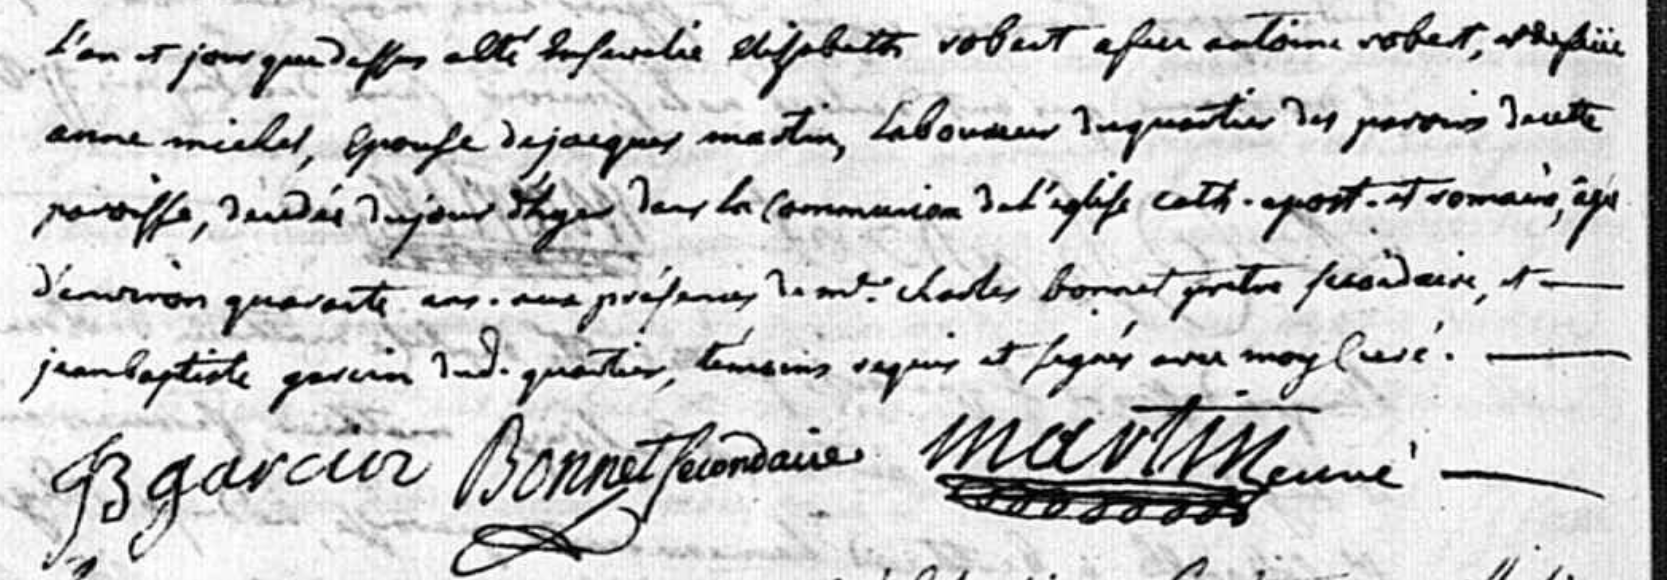 L'an et jour que dessus a été ensevelie elisabeth robert a feu antoine robert, et defüe
anne michel, epouse de jacques martin, Laboureur du quartier des paroirs de cette
paroisse, décédée du jour d'hyer dans la Communion de l'église cath. apost. et romaine, âgée
d'environ quarante ans. aux présences de mr. charles bonnet pretre secondaire, et
jean baptiste garcin dud. quartier, témoins requis et signés avec moy Curé.
JB garcin Bonnet secondaire martin curé